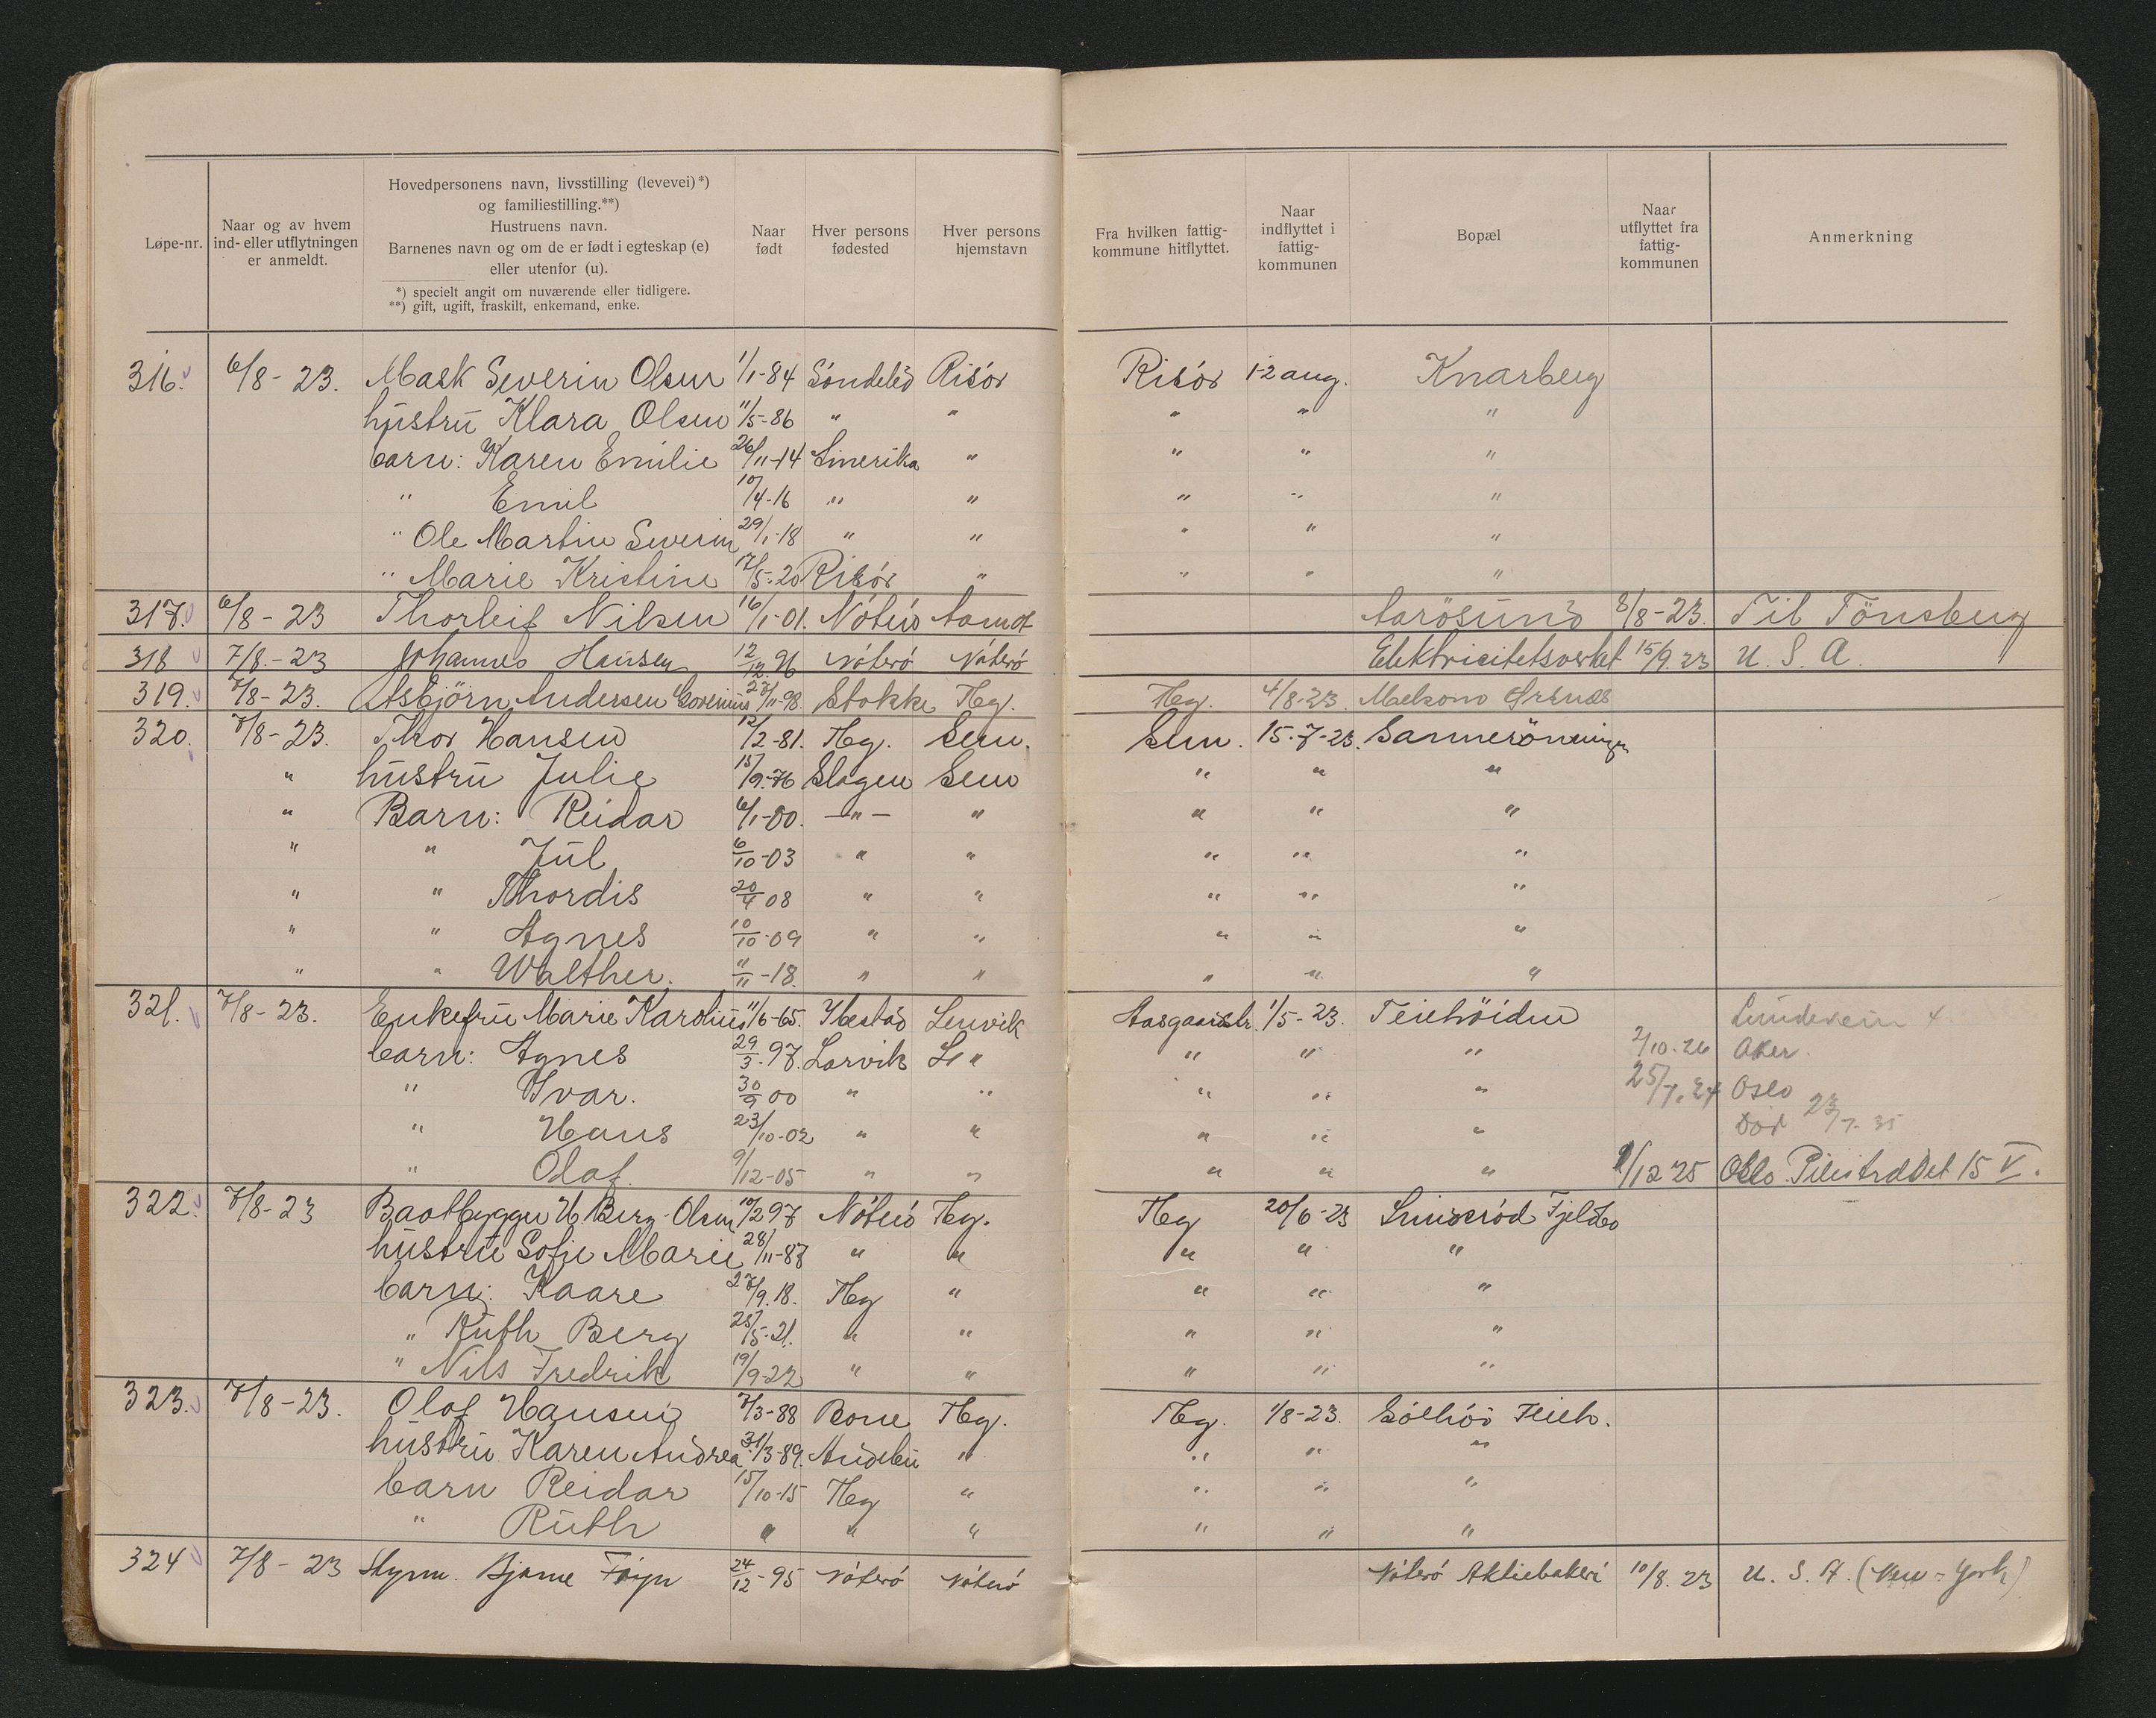 Løpe-nr.
Naar og av hvem
ind- eller utflytningen
er anmeldt.
Hovedpersonens navn, livsstilling (levevei)*)
og familiestilling.**)
Hustruens navn.
Barnenes navn og om de er født i egteskap (e)
eller utenfor (u).
*) specielt angit om nuværende eller tidligere.
**) gift, ugift, fraskilt, enkemand, enke.
Naar
født
Hver persons
fødested
Hver persons
hjemstavn
Fra hvilken fattig-
kommune hitflyttet.
Naar
indflyttet i
fattig-
kommunen
Bopæl
Naar
utflyttet fra
fattig-
kommunen
Anmerkning
316. 6/8 - 23. Mask Severin Olsen 1/1-84 Söndeled Risör Risör 1-2 aug. Knarberg
hustru Klara Olsen 11/5-86 " " " " "
barn: Karen Emilie 26/11-14 " " " "
" Emil 10/4-16 " " " " "
" Ole Martin Severin 29/1-18 " " " " "
" Marie Kristine 17/5-20 Risör " " " "
317. 6/8 - 23 Thorleif Nilsen 16/1-01. Nöterö Aarösund 8/8-23. Til Tönsberg
318 7/8.-23 Johannes Hansen 12/12. 96 Nöterö Nöterö Elektricitetsverket 15/9. 23 U. S. A.
319. 7/8-23. Asbjörn Andersen 27/11-98. Stokke Tbg. Tbg. 4/8-23. Melsom
320. 7/8-23. Thor Hansen 12/2-81. Tbg. Sem. Sem. 15-7-23. Sanneröningen
" hustru Julie 15/9-76 Slagen Sem " " "
" Barn: Reidar 6/1-00. -"- " " " "
" " Jul 6/10-03 " " " " "
" " Thordis 20/4 08 " " " " "
" " Agnes 10/10-09 " " " " "
" " Walther. 11/11-18. " " " " "
321. 7/8-23. Enkefru Marie Karoline 11/6-65. Ibestad Lenvik Aasgaardstr. 1/5-23. Teiehöiden
barn: Agnes 29/3-97. Larvik " " " " 2/10.26 Aker.
" Ivar. 30/9 00 " " " " " 25/7.24 Oslo
" Hans 23/10-02 " " " " " Död
" Olaf 9/12-05 " " " " " 1/12 25 Oslo Pilestrædet 15 V.
322. 7/8-23 Baatbygger H. Berg-Olsen 10/2 97 Nöterö Tbg. Tbg 20/6-23 Smiseröd Fjeldbo
hustru Sofie Marie 28/11-87 " " " " "
barn: Kaare 27/9.18. Tbg " " " "
" Ruth Berg 25/5-21. " " " " "
" Nils Fredrik 19/9-22 " " " " "
323. 7/8-23. Olaf Hansen 7/3-88 Borre Tbg. Tbg. 1/8-23. Sölhöi Teieh.
hustru Karen Andrea 31/3-89. Andebu " " " "
barn Reidar 15/10-15 Tbg " " " "
" Ruth " " " " " "
324 7/8-23 Styrm. Bjarne Föyn 24/12-95 Nöterö Nöterö Nöterö Aktiebakeri 10/8. 23 U. S. A. (New-York)